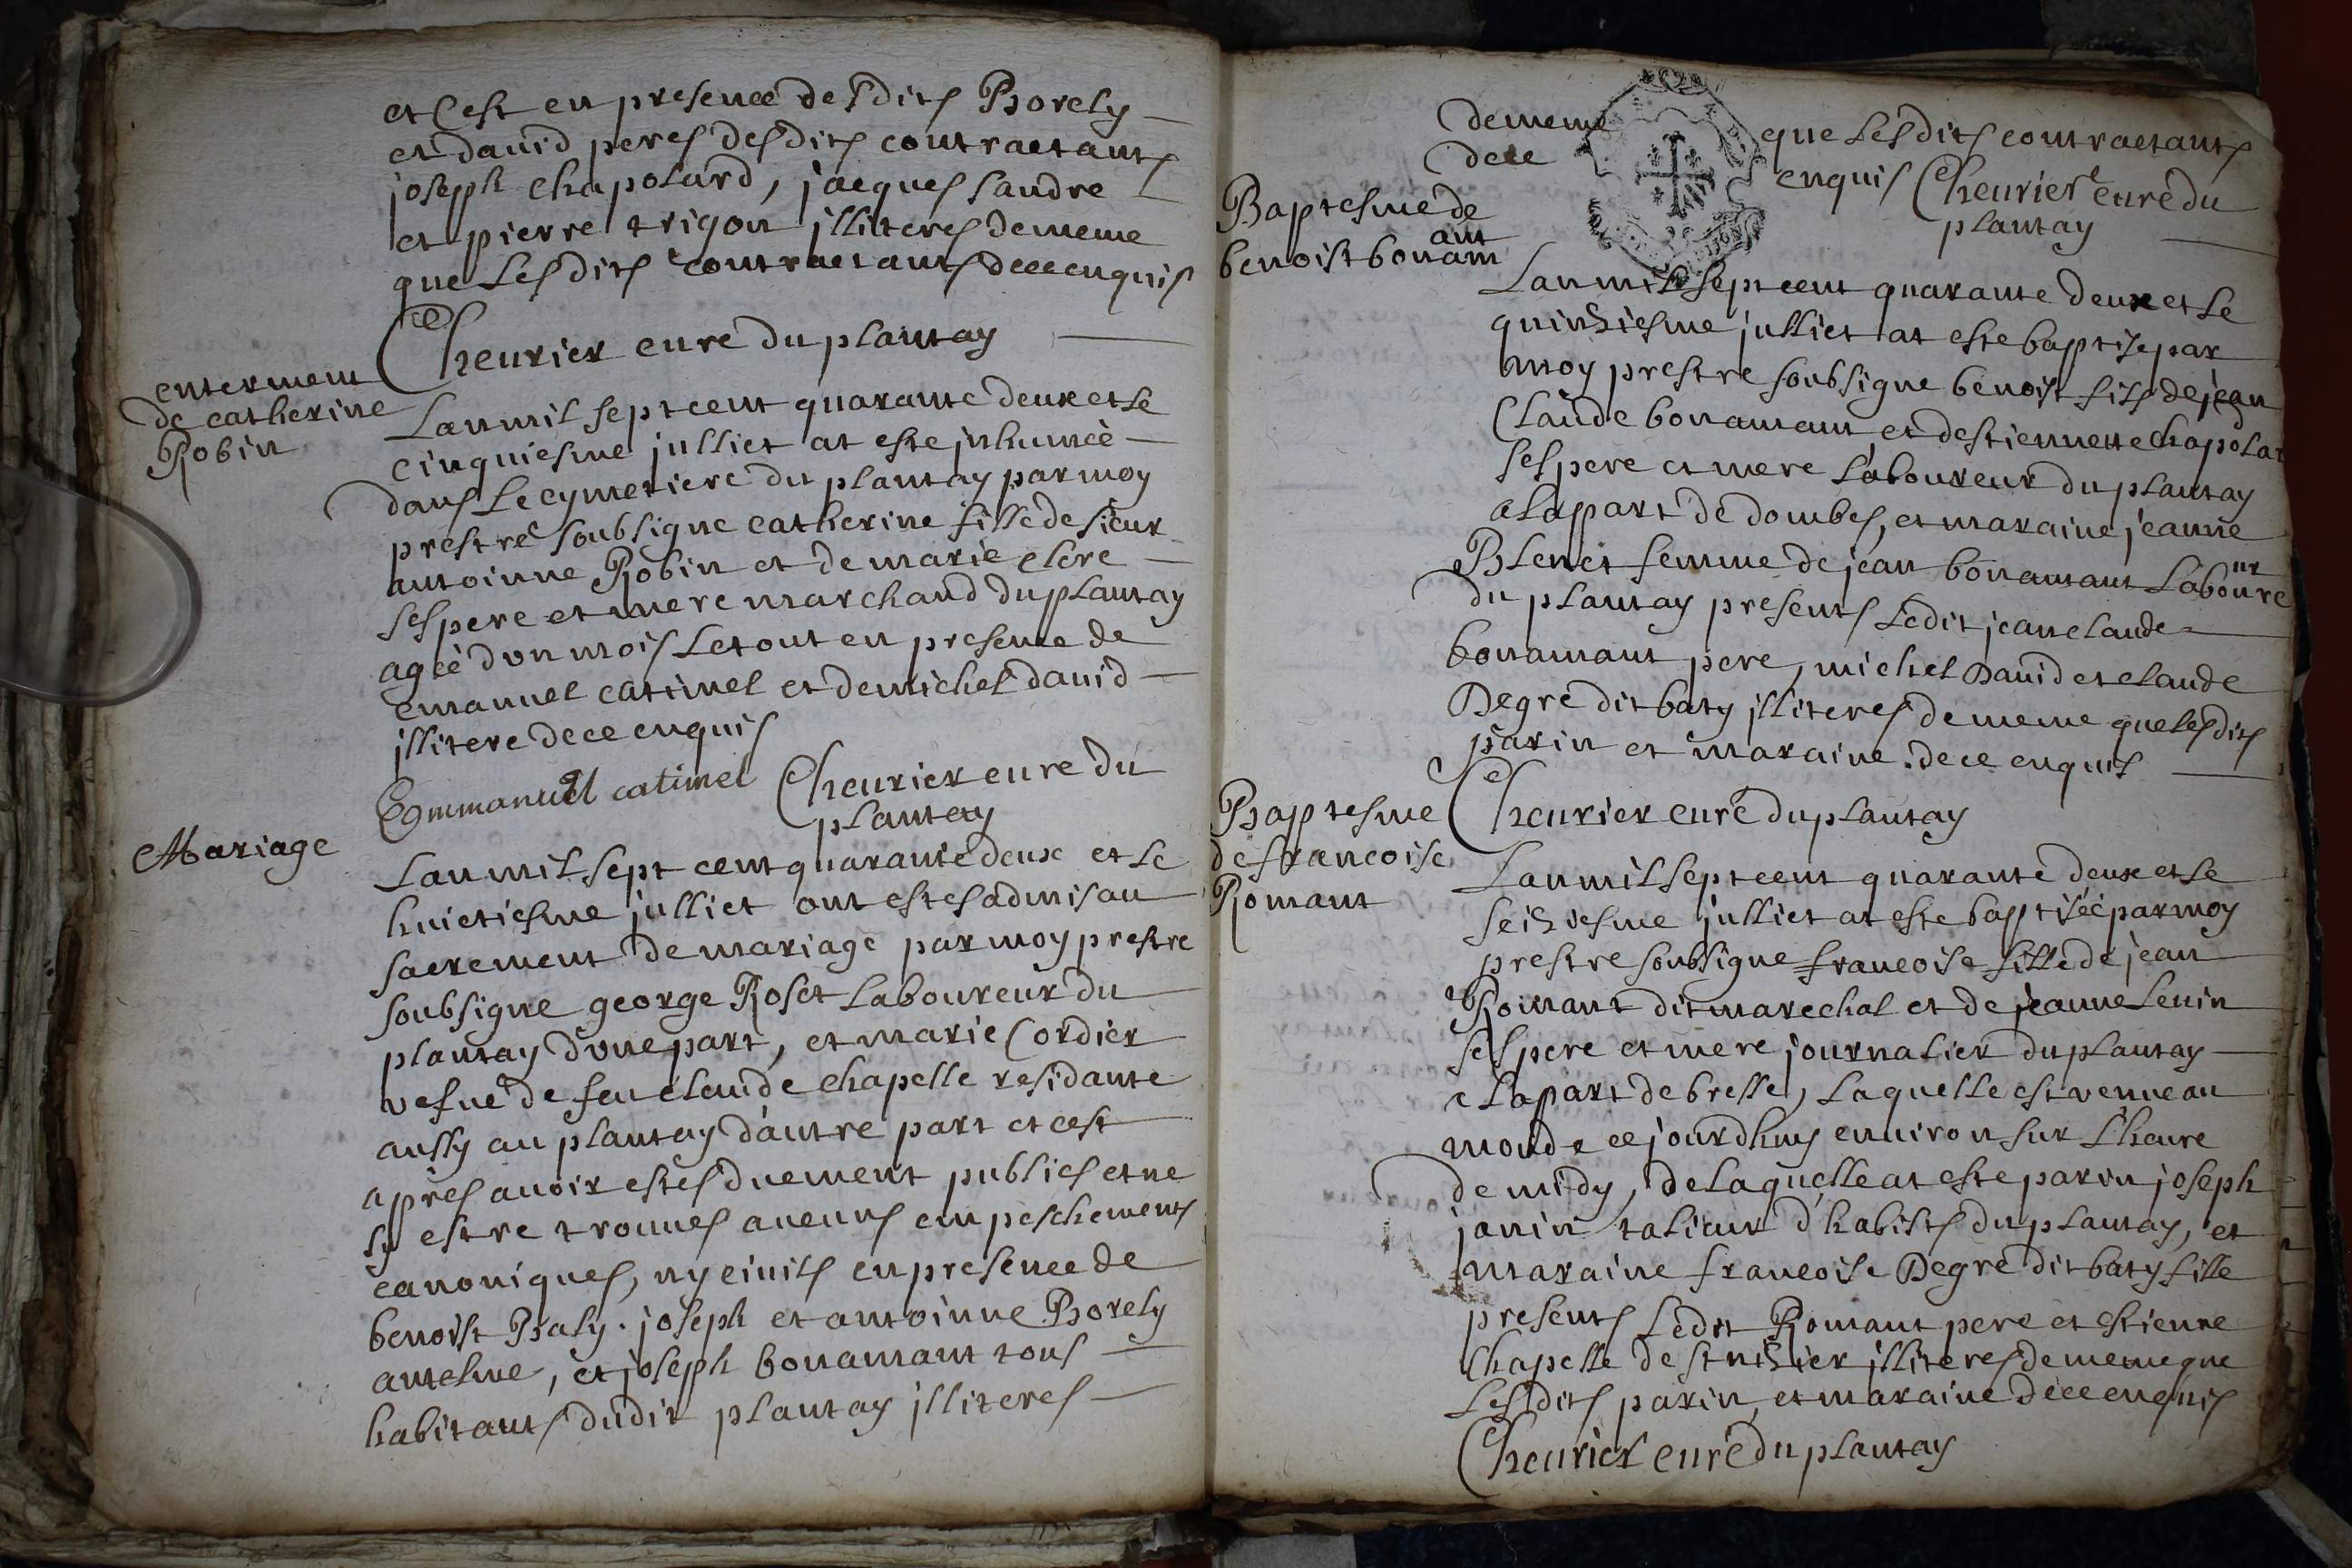 et cest en presence desdits Borely
et dauid peres desdits contractants
joseph chapolard, jacques sandre
et pierre trigon jlliteres de meme
que lesdits contractants dece enquis
Cheurier cure du plantay
enterment
de catherine
Robin
Lan mil sept cent quarante deux et le
cinquiesme julliet at este jnhumeè
dans le cymetiere du plantay par moy
prestre soubsigne catherine fille de sieur
antoinne Robin et de marie clere
ses pere et mere marchand du plantay
ageè dvn mois le tout en presence de
emanuel catimel et de michel dauid
jllitere de ce enquis
Emmanuel catimel Cheurier cure du
plantay
Mariage
Lan mil sept cent quarante deux et le
huictiesme julliet ont estes admis au
sacrement de mariage par moy prestre
soubsigne george Roset laboureur du
plantay dvne part, et marie Cordier
vefue de feu claude chapelle residante
aussy au plantay dautre part et cest
apres auoir estes duement publies et ne
sy estre trouues aucuns empeschements
canoniques, ny ciuils en presence de
benoist Braly. joseph et antoinne Borely
antelme, et joseph bonamant tous
habitants dudit plantay jlliteres
de meme que lesdits contractants
dece enquis Cheurier cure du
plantay
Baptesme de
benoist bonam
ant
Lan mil sept cent quarante deux et le
quinziesme julliet at este baptise par
moy prestre soubsigne benoist fils de jean
Claude bonamant et destiennette chapolar
ses pere et mere laboureur du plantay
a la part de dombes, et maraine jeanne
Blenet femme de jean bonamant laboure
ur
du plantay presents ledit jean claude
bonamant pere, michel Dauid et claude
Degre dit baty jlliteres de meme que lesdits
parin et maraine. de ce enquis
Cheurier curé du plantay
Baptesme
de francoise
Romant
Lan mil sept cent quarante deux et le
seiziesme julliet at este baptiseè par moy
prestre soubsigne francoise fille de jean
Romant dit marechal et de jeanne Leuin
ses pere et mere journalier du plantay
a la part de bresse, laquelle est venue au
monde ce jourdhuy enuiron sur lheure
de midy, de laquelle at este parin joseph
janin talieur dhabists du plantay, et
maraine francoise Degre dit baty fille
presents ledit Romant pere et estienne
Chapelle de st nizier jlliteres de meme que
lesdits parin, et maraine dece enquis
Cheurier curé du plantay